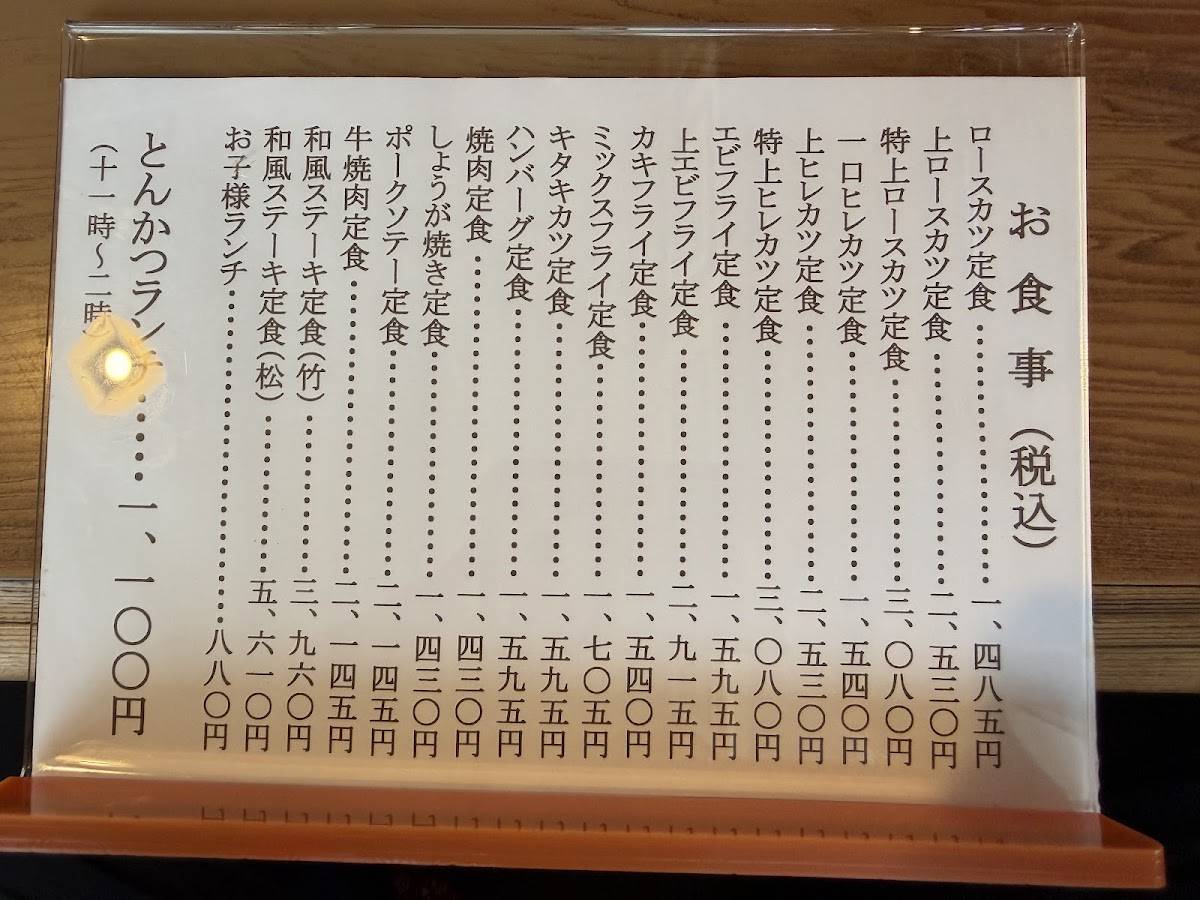 お食事（税込）
ロースカツ定食……………………一、四八五円
上ロースカツ定食……………………二、五三〇円
特上ロースカツ定食……………………三、〇八〇円
一口ヒレカツ定食……………………一、五四〇円
上ヒレカツ定食……………………二、五三〇円
特上ヒレカツ定食……………………三、〇八〇円
エビフライ定食……………………一、五九五円
上エビフライ定食……………………二、九一五円
カキフライ定食……………………一、五四〇円
ミックスフライ定食……………………一、七〇五円
キタキカツ定食……………………一、五九五円
ハンバーグ定食……………………一、五九五円
焼肉定食……………………一、四三〇円
しょうが焼き定食……………………一、四三〇円
ポークソテー定食……………………二、一四五円
牛焼肉定食……………………二、一四五円
和風ステーキ定食（竹）……………………三、九六〇円
和風ステーキ定食（松）……………………五、六一〇円
お子様ランチ……………………八八〇円
とんかつランチ………一、一〇〇円
（十一時〜二時）